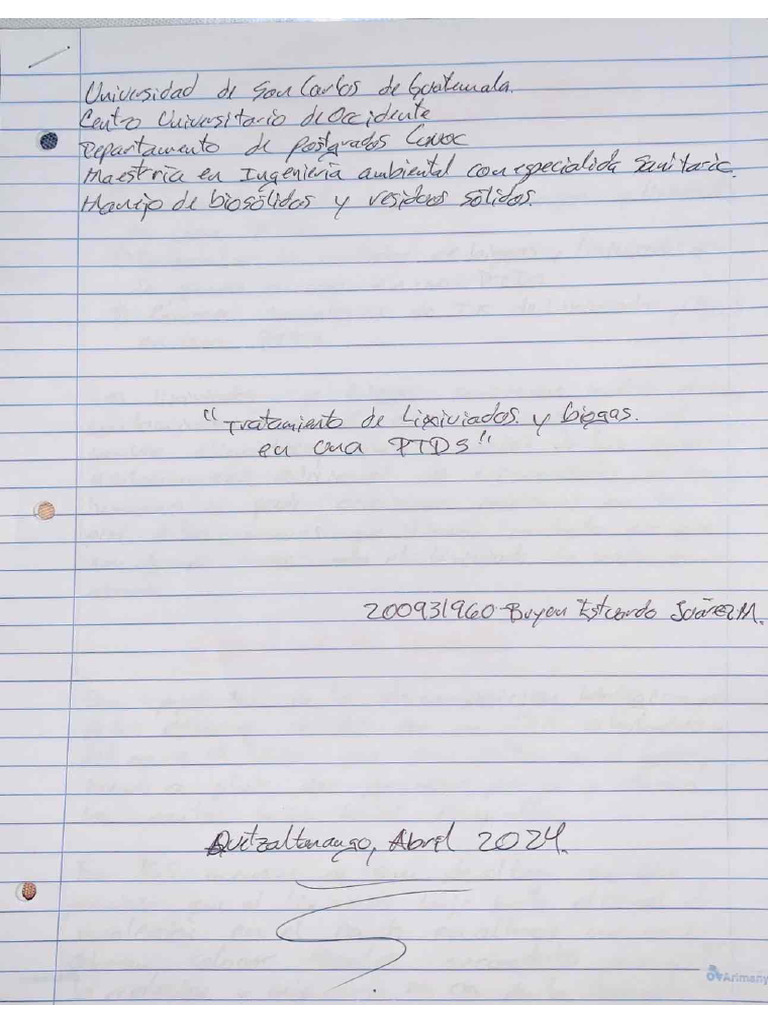 Universidad de San Carlos de Guatemala.
Centro Universitario de Occidente
Departamento de Postgrados Cunoc
Maestría en Ingeniería ambiental con especialida Sanitaria.
Manejo de biosólidos y residuos sólidos.
"Tratamiento de Lixiviados. y biogas.
en una PTDS"
200931960-Buyon Estuardo Suárez M.
Quetzaltenango, Abril 2024.
Arimany